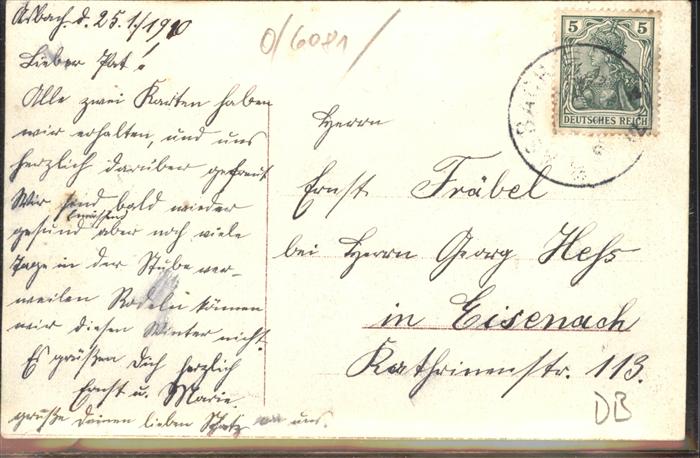 Asbach d. 25.1./1910
0/6081
Lieber Pat!
Alle zwei Karten haben
wir erhalten, und uns
herzlich darüber gefreut
Wir sind bald wieder
gesund aber noch viele
Tage in der Stube ver-
weilen Rodeln können
wir diesen Winter nicht.
Es grüßen Dich herzlich
Ernst u. Marie.
grüße deinen lieben Schatz von uns.
5 5
DEUTSCHES REICH
Herrn
Ernst Fräbel
bei Herrn Georg Hess
in Eisenach
Kathrinenstr. 113.
DB